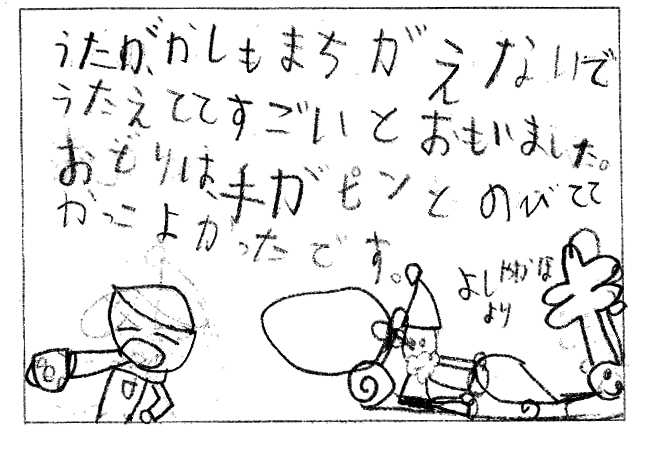 うたが、かしもまちがえないで
うたえててすごいとおもいました。
おどりは、手がピンとのびてて
かっこよかったです。
よしわかほ
より